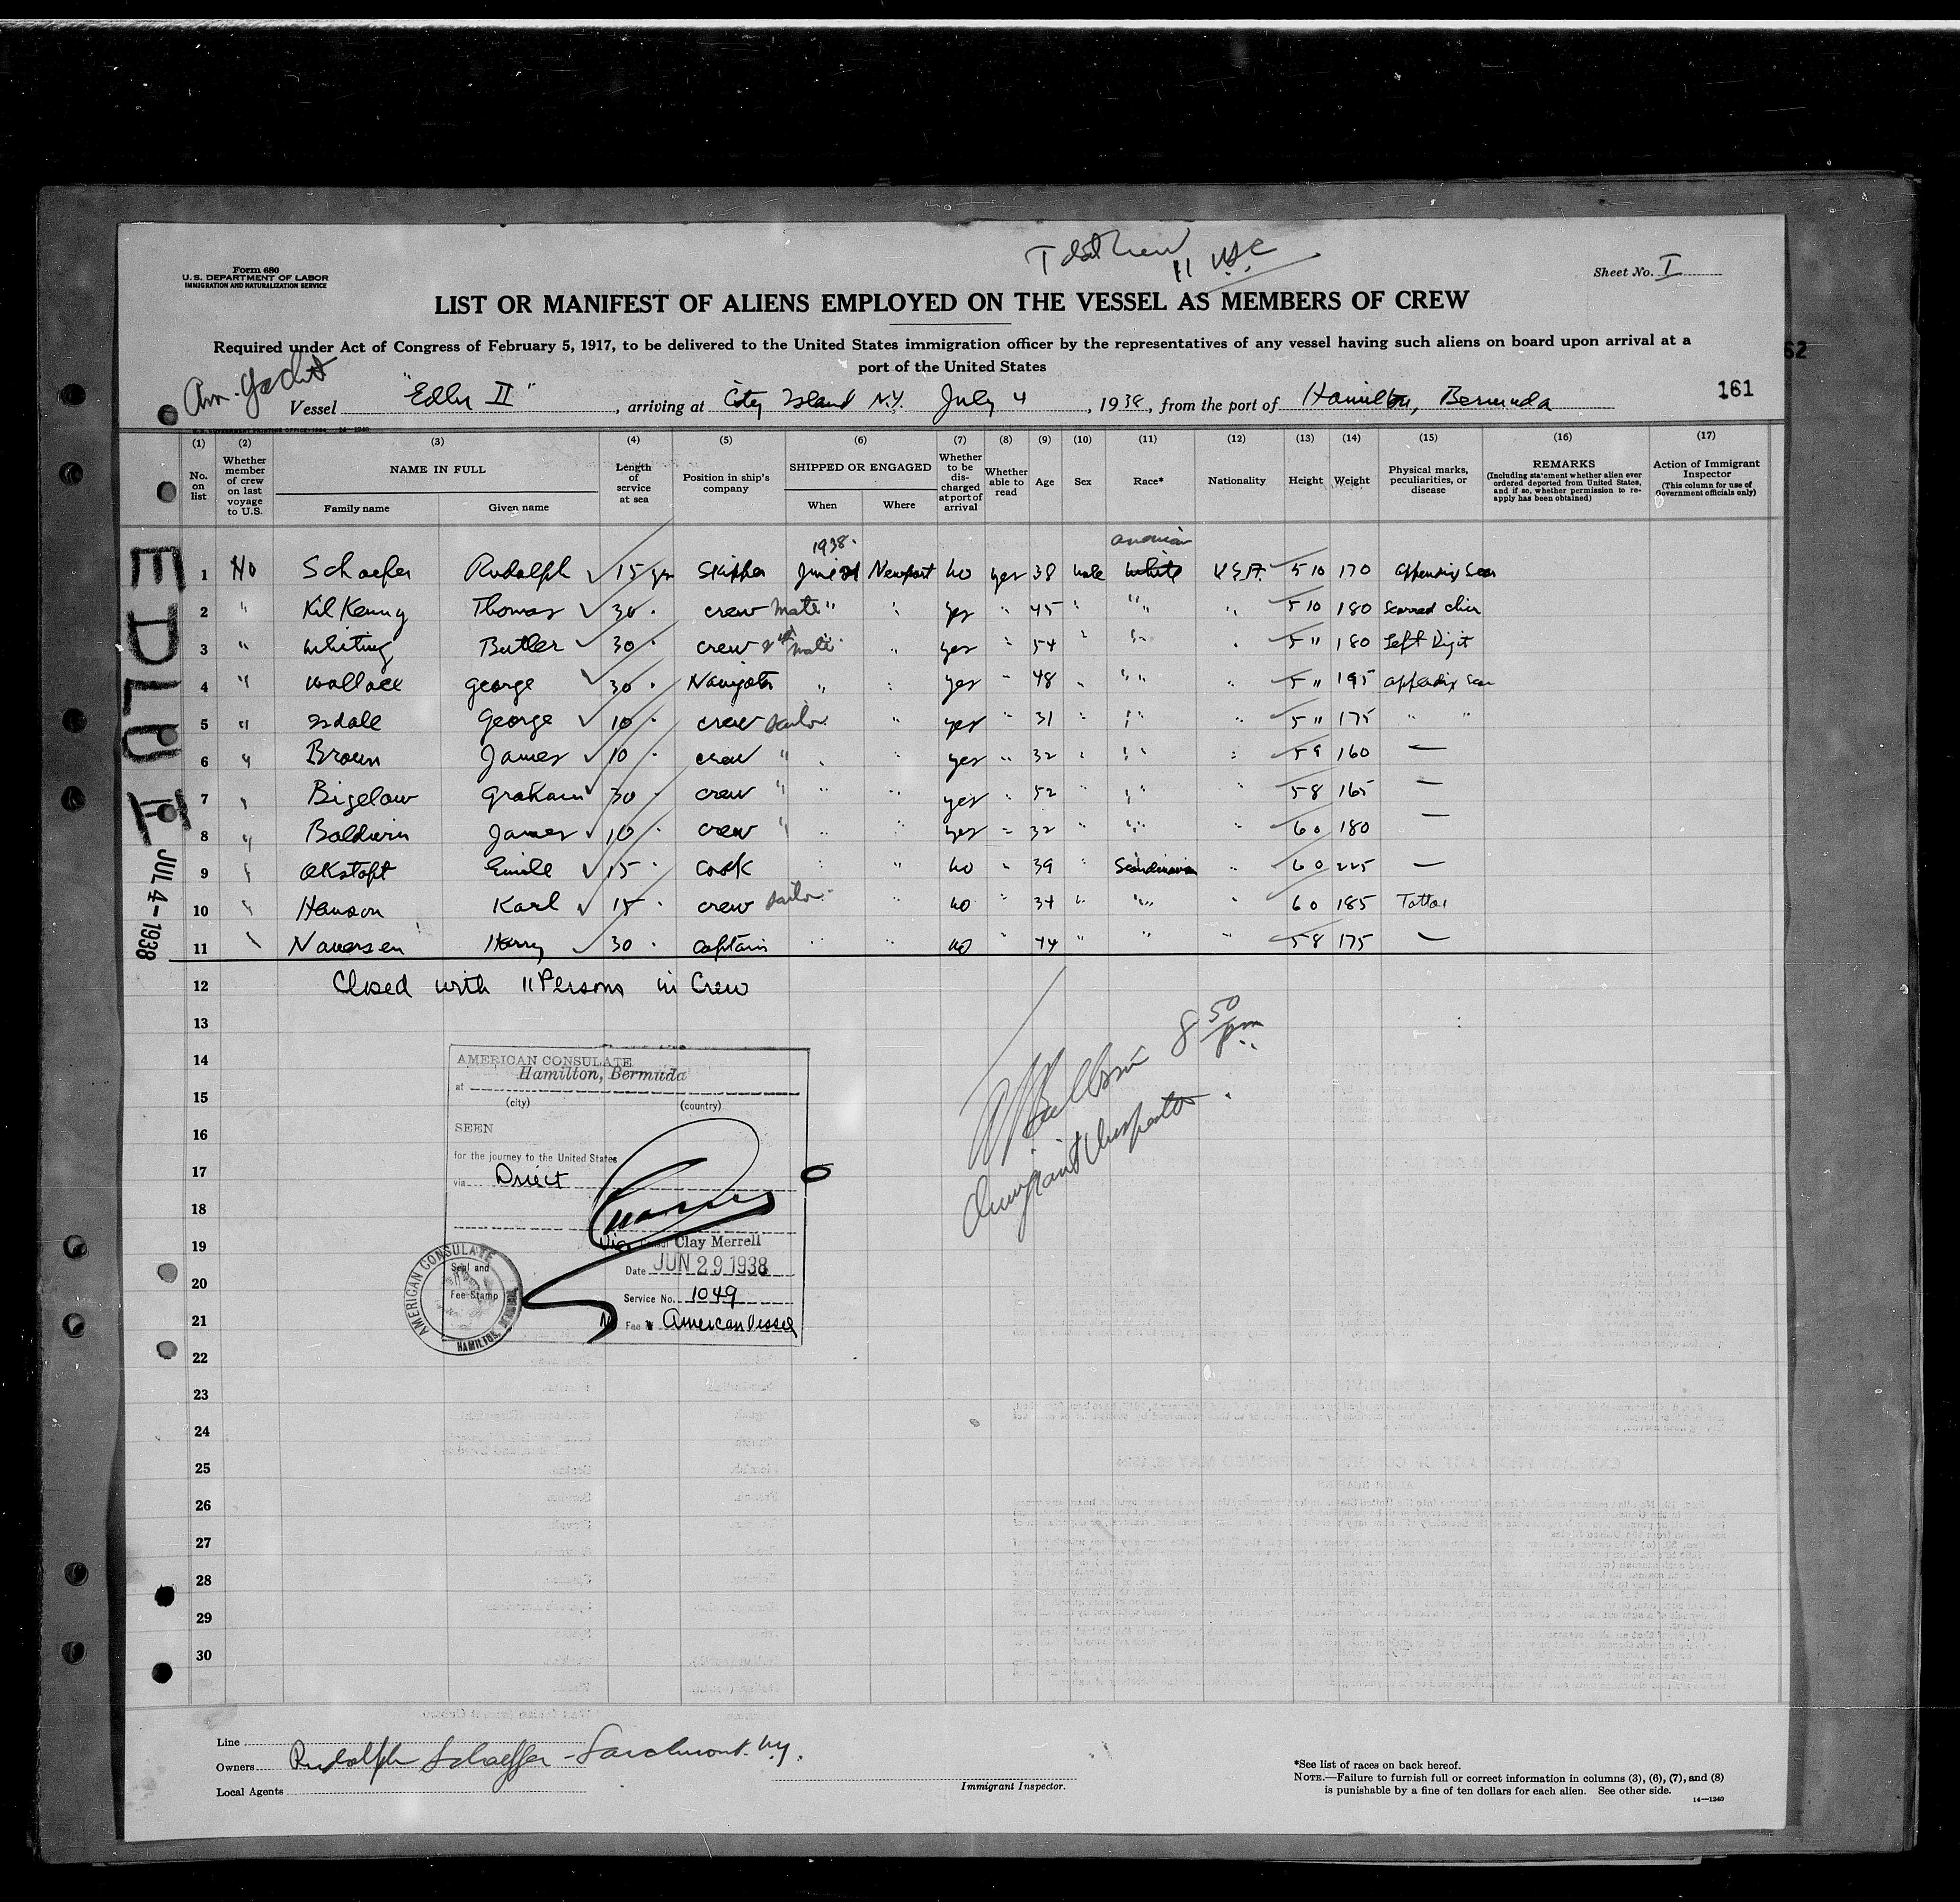 Form 680
U. S. DEPARTMENT OF LABOR
IMMIGRATION AND NATURALIZATION SERVICE
11 USC
Sheet No. I
LIST OR MANIFEST OF ALIENS EMPLOYED ON THE VESSEL AS MEMBERS OF CREW
Required under Act of Congress of February 5, 1917, to be delivered to the United States immigration officer by the representatives of any vessel having such aliens on board upon arrival at a
port of the United States
62
161
Am. Yacht
Vessel "Edlu II", arriving at City Island N.Y. July 4, 1938, from the port of Hamilton, Bermuda
(1) (2) (3) (4) (5) (6) (7) (8) (9) (10) (11) (12) (13) (14) (15) (16) (17)
No. on list
Whether member of crew on last voyage to U.S.
NAME IN FULL
Family name Given name
Length of service at sea
Position in ship's company
SHIPPED OR ENGAGED
When Where
Whether to be discharged at port of arrival
Whether able to read
Age
Sex
Race*
Nationality
Height
Weight
Physical marks, peculiarities, or disease
REMARKS
(Including statement whether alien ever ordered deported from United States, and if so, whether permission to reapply has been obtained)
Action of Immigrant Inspector
(This column for use of Government officials only)
1938.
1 No Schaefer Rudolph 15 yrs Skipper June 21 Newport no yes 38 male white U.S.A. 5 10 170 appendix scar
2 " Kilkenny Thomas 30 " crew mate " " yes " 45 " " " 5 10 180 Scarred chin
3 " Whiting Butler 30 " crew 2nd mate " " yes " 54 " " " 5 11 180 Left Digit
4 " Wallace George 30 " Navigator " " yes " 48 " " " 5 11 195 appendix scar
5 " Isdale George 10 " crew sailor " " yes " 31 " " " 5 11 175 " "
6 " Brown James 10 " crew " " " yes " 32 " " " 5 9 160 —
7 " Bigelow Graham 30 " crew " " " yes " 52 " " " 5 8 165 —
8 " Baldwin James 10 " crew " " " yes " 32 " " " 6 0 180 —
9 " Okstoft Emile 15 " cook " " no " 39 " Scandinavian " 6 0 225 —
10 " Hanson Karl 15 " crew sailor " " no " 34 " " " 6 0 185 Tattoo
11 " Naversen Harry 30 " captain " " no " 44 " " " 5 8 175 —
12 Closed with 11 Persons in Crew
13
14
15
16
17
18
19
20
21
22
23
24
25
26
27
28
29
30
EDLU II
JUL 4-1938
AMERICAN CONSULATE
at Hamilton, Bermuda
(city) (country)
SEEN
for the journey to the United States
via Direct
Vice Consul Clay Merrell
Date JUN 29 1938
Service No. 1049
No Fee American Vessel
Seal and
Fee Stamp
AMERICAN CONSULATE
HAMILTON, BERMUDA
8 50 pm
Immigrant Inspector
Line
Owners Rudolph Schaeffer - Larchmont. N.Y.
Local Agents
Immigrant Inspector.
*See list of races on back hereof.
NOTE.—Failure to furnish full or correct information in columns (3), (6), (7), and (8)
is punishable by a fine of ten dollars for each alien. See other side.
14—1240